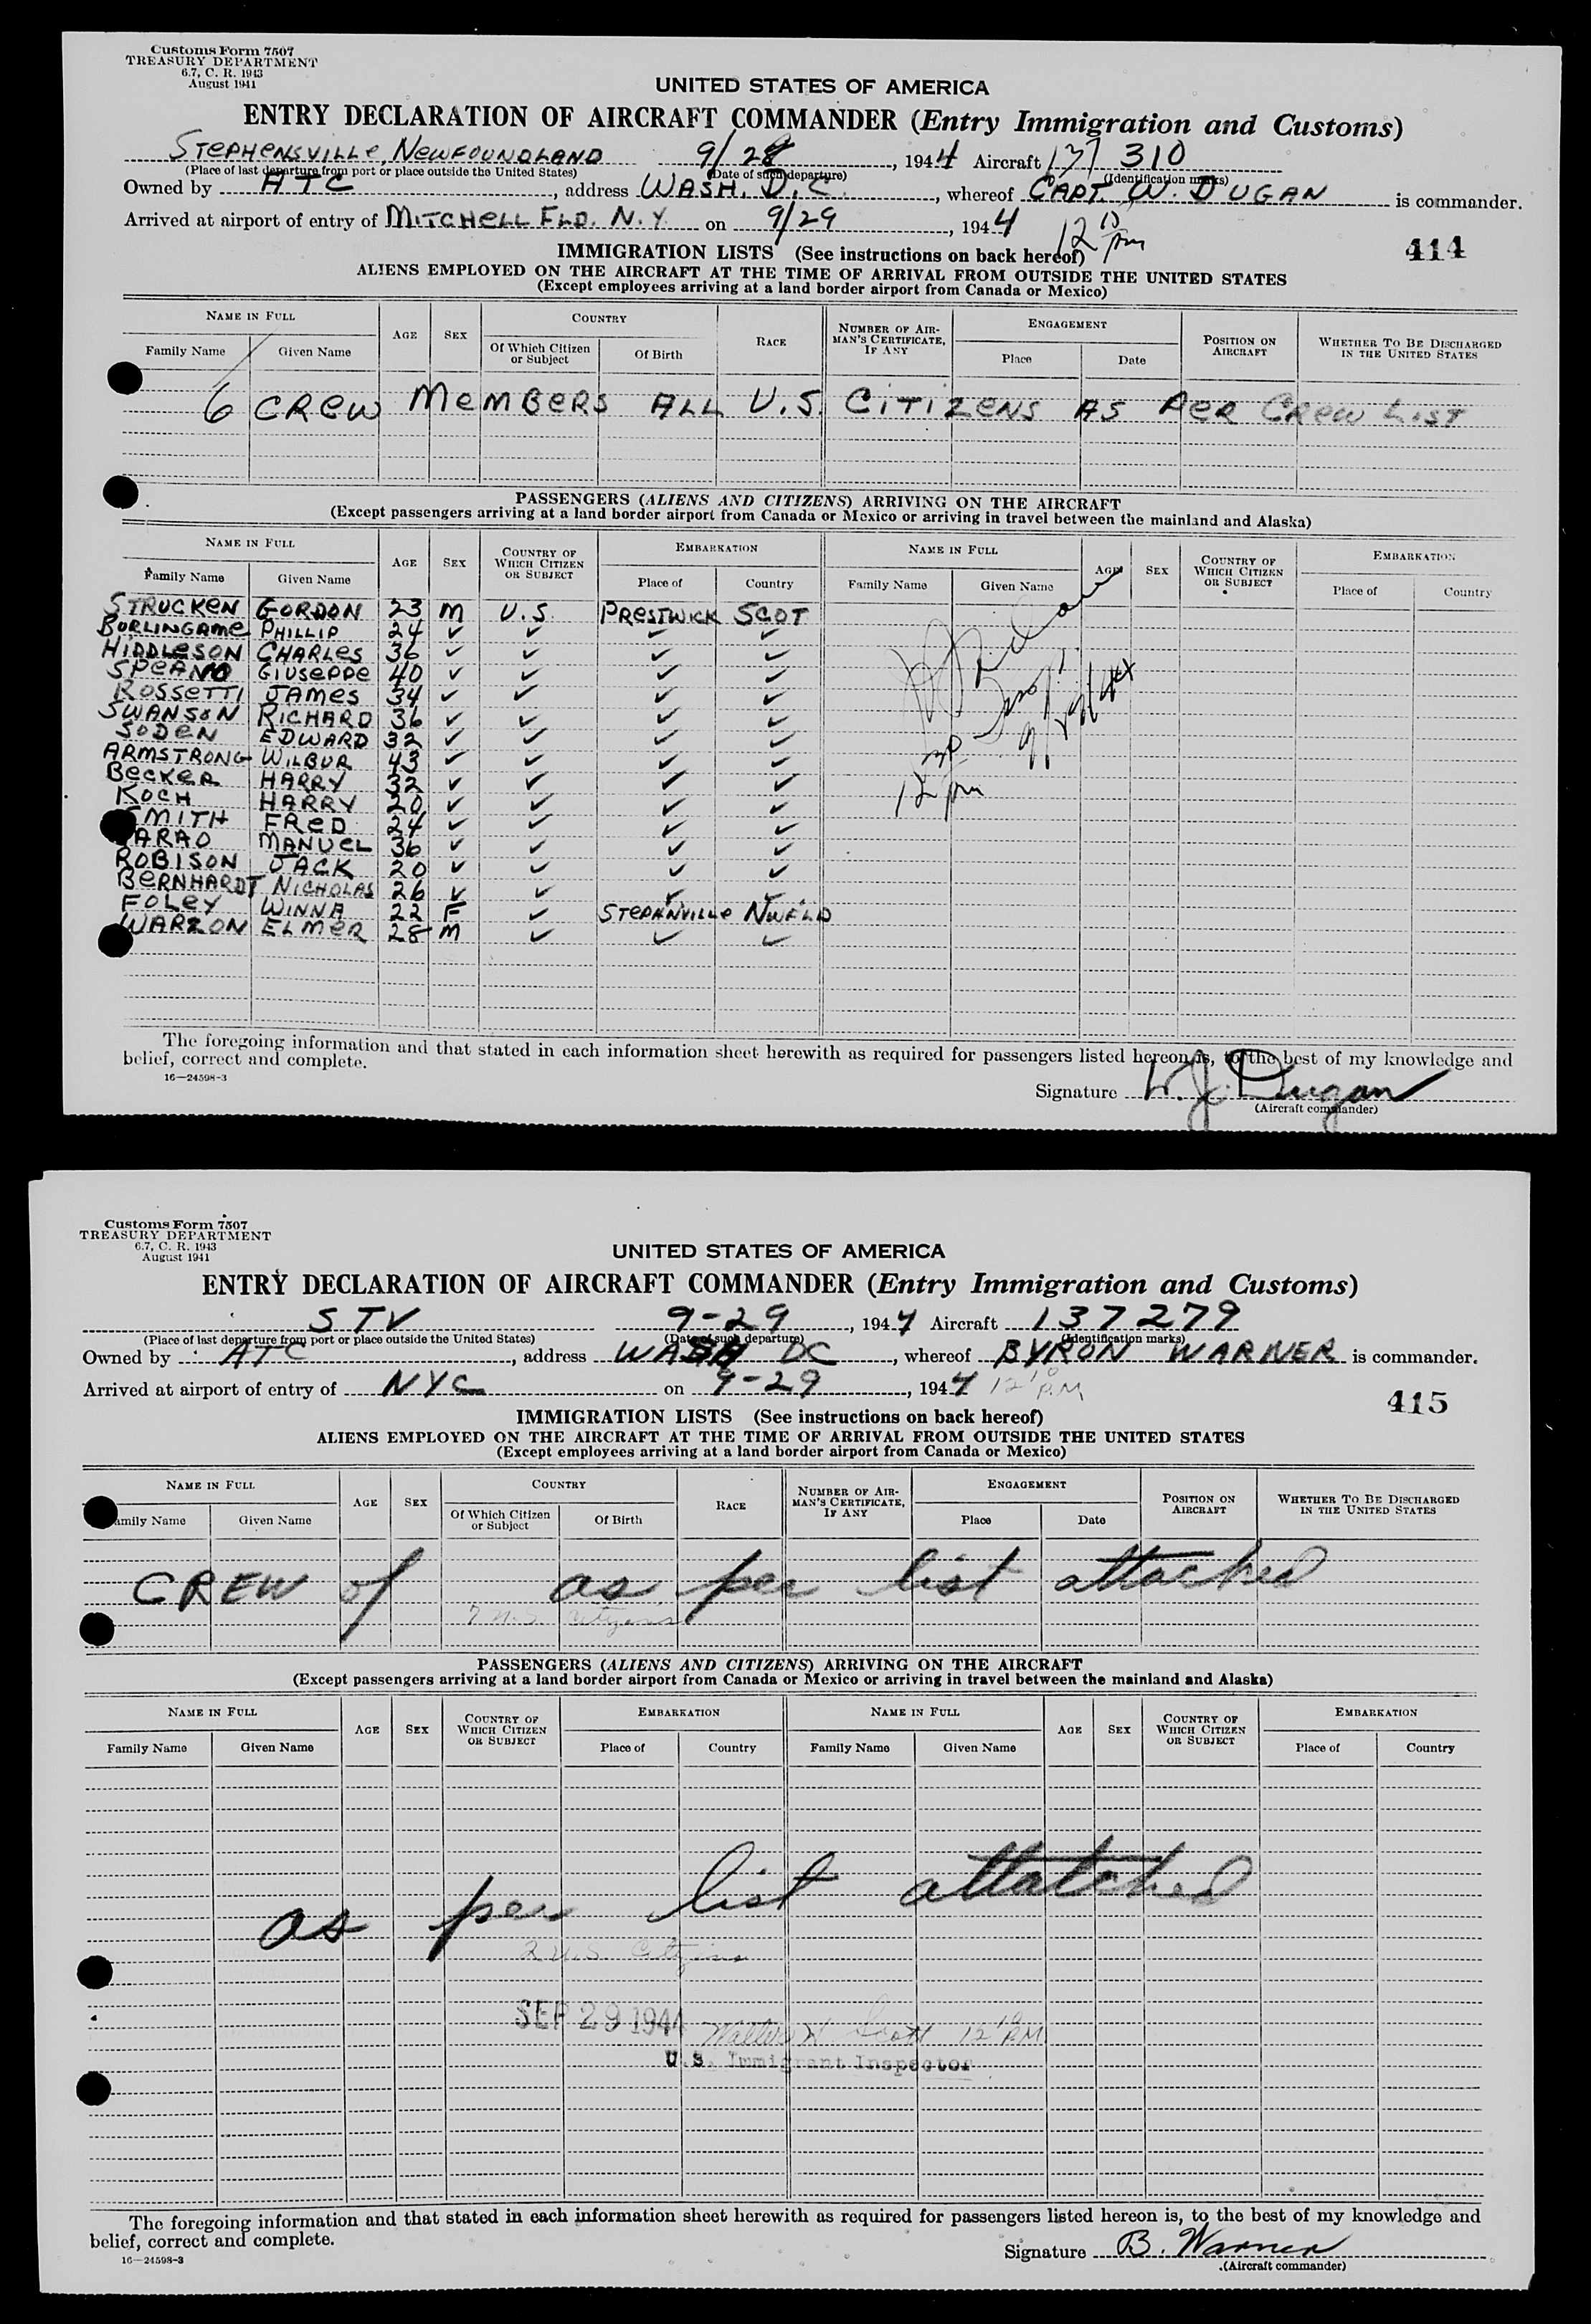 Customs Form 7507
TREASURY DEPARTMENT
6.7, C. R. 1943
August 1941
UNITED STATES OF AMERICA
ENTRY DECLARATION OF AIRCRAFT COMMANDER (Entry Immigration and Customs)
STEPHENSVILLE, NEWFOUNDLAND 9/28, 1944 Aircraft 137 310
(Place of last departure from port or place outside the United States) (Date of such departure) (Identification marks)
Owned by ATC, address WASH. D.C., whereof CAPT. W. DUGAN is commander.
Arrived at airport of entry of MITCHELL FLD. N.Y. on 9/29, 1944 12 10 pm
414
IMMIGRATION LISTS (See instructions on back hereof)
ALIENS EMPLOYED ON THE AIRCRAFT AT THE TIME OF ARRIVAL FROM OUTSIDE THE UNITED STATES
(Except employees arriving at a land border airport from Canada or Mexico)
NAME IN FULL AGE SEX COUNTRY RACE NUMBER OF AIRMAN'S CERTIFICATE, IF ANY ENGAGEMENT POSITION ON AIRCRAFT WHETHER TO BE DISCHARGED IN THE UNITED STATES
Family Name Given Name Of Which Citizen or Subject Of Birth Place Date
6 CREW MEMBERS ALL U.S. CITIZENS AS PER CREW LIST
PASSENGERS (ALIENS AND CITIZENS) ARRIVING ON THE AIRCRAFT
(Except passengers arriving at a land border airport from Canada or Mexico or arriving in travel between the mainland and Alaska)
NAME IN FULL AGE SEX COUNTRY OF WHICH CITIZEN OR SUBJECT EMBARKATION NAME IN FULL AGE SEX COUNTRY OF WHICH CITIZEN OR SUBJECT EMBARKATION
Family Name Given Name Place of Country Family Name Given Name Place of Country
STRUCKEN GORDON 23 M U.S. PRESTWICK SCOT
BURLINGAME PHILLIP 24 ✓ ✓ ✓ ✓
HIDDLESON CHARLES 36 ✓ ✓ ✓ ✓
SPEANO GIUSEPPE 40 ✓ ✓ ✓ ✓
ROSSETTI JAMES 34 ✓ ✓ ✓ ✓
SWANSON RICHARD 36 ✓ ✓ ✓ ✓
SODEN EDWARD 32 ✓ ✓ ✓ ✓
ARMSTRONG WILBUR 43 ✓ ✓ ✓ ✓
BECKER HARRY 32 ✓ ✓ ✓ ✓
KOCH HARRY 20 ✓ ✓ ✓ ✓
SMITH FRED 24 ✓ ✓ ✓ ✓
ARAO MANUEL 36 ✓ ✓ ✓ ✓
ROBISON JACK 20 ✓ ✓ ✓ ✓
BERNHARDT NICHOLAS 26 ✓ ✓ ✓ ✓
FOLEY WINNA 22 F ✓ STEPHNVILLE NWFLD
WARZON ELMER 28 M ✓ ✓ ✓
9/29/44
12 pm
The foregoing information and that stated in each information sheet herewith as required for passengers listed hereon is, to the best of my knowledge and
belief, correct and complete.
16—24598-3
Signature W. J. Dugan
(Aircraft commander)
Customs Form 7507
TREASURY DEPARTMENT
6.7, C. R. 1943
August 1941
UNITED STATES OF AMERICA
ENTRY DECLARATION OF AIRCRAFT COMMANDER (Entry Immigration and Customs)
STV 9-29, 1944 Aircraft 137279
(Place of last departure from port or place outside the United States) (Date of such departure) (Identification marks)
Owned by ATC, address WASH DC, whereof BYRON WARNER is commander.
Arrived at airport of entry of NYC on 9-29, 1944 12 10 P.M
415
IMMIGRATION LISTS (See instructions on back hereof)
ALIENS EMPLOYED ON THE AIRCRAFT AT THE TIME OF ARRIVAL FROM OUTSIDE THE UNITED STATES
(Except employees arriving at a land border airport from Canada or Mexico)
NAME IN FULL AGE SEX COUNTRY RACE NUMBER OF AIRMAN'S CERTIFICATE, IF ANY ENGAGEMENT POSITION ON AIRCRAFT WHETHER TO BE DISCHARGED IN THE UNITED STATES
amily Name Given Name Of Which Citizen or Subject Of Birth Place Date
CREW of as per list attached
7 U.S. Citizens
PASSENGERS (ALIENS AND CITIZENS) ARRIVING ON THE AIRCRAFT
(Except passengers arriving at a land border airport from Canada or Mexico or arriving in travel between the mainland and Alaska)
NAME IN FULL AGE SEX COUNTRY OF WHICH CITIZEN OR SUBJECT EMBARKATION NAME IN FULL AGE SEX COUNTRY OF WHICH CITIZEN OR SUBJECT EMBARKATION
Family Name Given Name Place of Country Family Name Given Name Place of Country
as per list attatched
2 U.S. Citizens
SEP 29 1944 Walter H Scott 12 10 P.M
U.S. Immigrant Inspector
The foregoing information and that stated in each information sheet herewith as required for passengers listed hereon is, to the best of my knowledge and
belief, correct and complete.
16—24598-3
Signature B. Warner
(Aircraft commander)